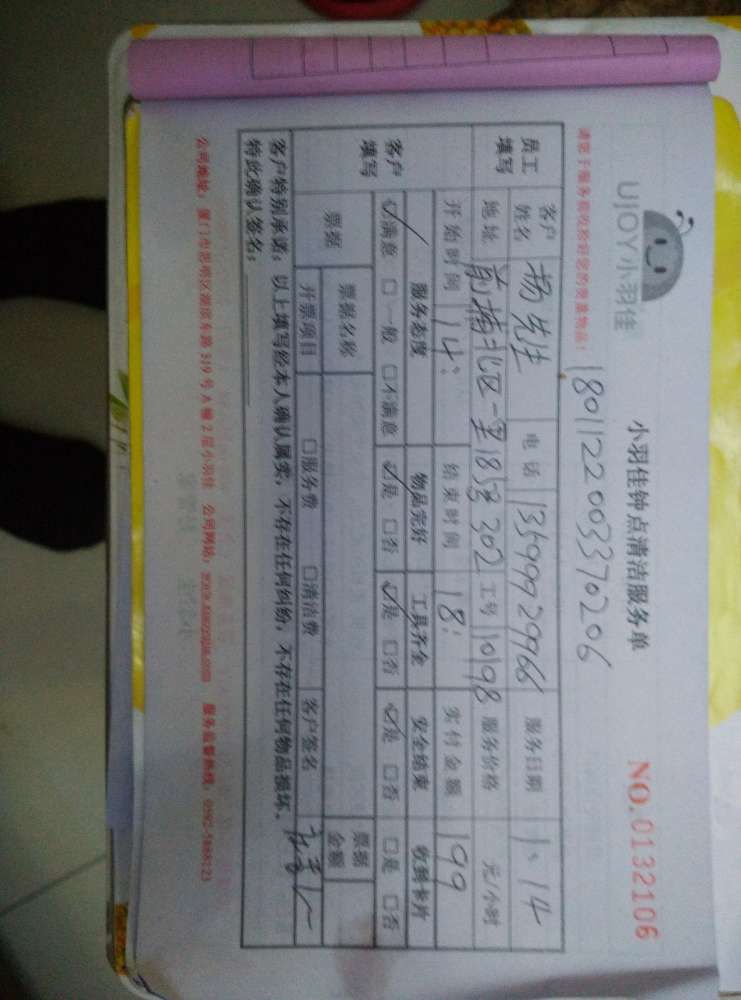 UJOY小羽佳
小羽佳钟点清洁服务单
NO.0132106
请您于服务前收拾好您的贵重物品!
1801122003370206
员工填写
客户姓名 杨先生 电话 13599929966 服务日期 1、14
地址 前埔北区一里185号302 工号 10198 服务价格 元/小时
开始时间 14: 结束时间 18: 实付金额 199
客户填写
服务态度 物品完好 工具齐全 安全结束 收到卡片
☑满意 □一般 □不满意 ☑是 □否 ☑是 □否 ☑是 □否 □是 □否
票据 票据名称 票据金额
开票项目 □服务费 □清洁费 客户签名
客户特别承诺:以上填写经本人确认属实,不存在任何纠纷,不存在任何物品损坏。
特此确认签名:
公司地址:厦门市思明区湖滨东路319号A幢2层小羽佳 公司网站:www.xiaoyujia.com 服务监督热线:0592-5868123